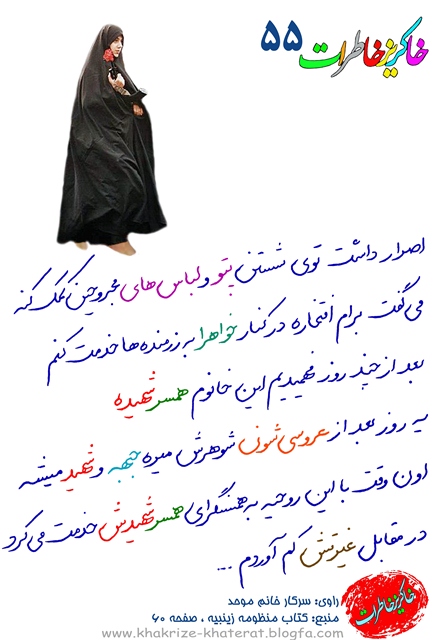 خاکریز خاطرات ۵۵
اصرار داشت توی شستن پتو و لباس‌های مجروحین کمک کنه
می گفت برام افتخاره در کنار خواهرا به رزمنده ها خدمت کنم
بعد از چند روز فهمیدیم این خانوم همسر شهیده
یه روز بعد از عروسی شون شوهرش میره جبهه و شهید میشه
اون وقت با این روحیه به همسنگرای همسر شهیدش خدمت می کرد
در مقابل غیرتش کم آوردم ...
راوی: سرکار خانم موحد
منبع: کتاب منظومه زینبیه ، صفحه ۶۰
خاکریز خاطرات
www.khakrize-khaterat.blogfa.com